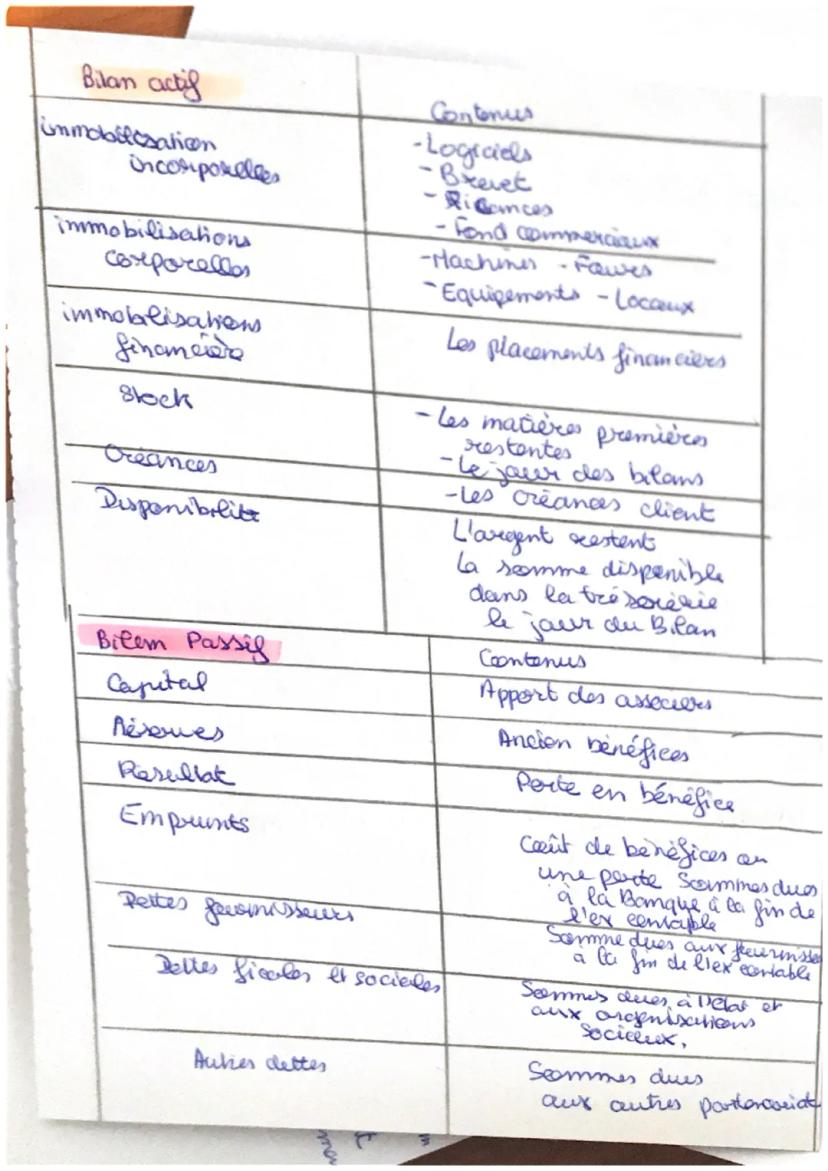 Bilan actif
Contenus
immobilisation
incorporelles
- Logiciels
- Brevet
- Fond commerciaux
immobilisations
corporelles
- Machines - Faures
- Equipements - Locaux
immobilisations
financière
Les placements financiers
Stock
- Les matières premières
restentes
- Le jour des bilans
Créances
- Les créances client
Disponibilite
L'argent restent
La somme disponible
dans la trésorérie
le jour du Bilan
Bilem Passif
Contenus
Capital
Apport des associers
Réserves
Ancien bénéfices
Resultat
Perte en bénéfice
Emprunts
Coût de bénéfices ou
une perte Sommes dues
à la Banque à la fin de
l'ex contable
Dettes fournisseurs
Somme dues aux fournisse
a la fin de l'ex contable
Dettes ficales et sociales
Sommes dues à l'état et
aux organisations
Sociaux.
Autres dettes
Sommes dues
aux autres